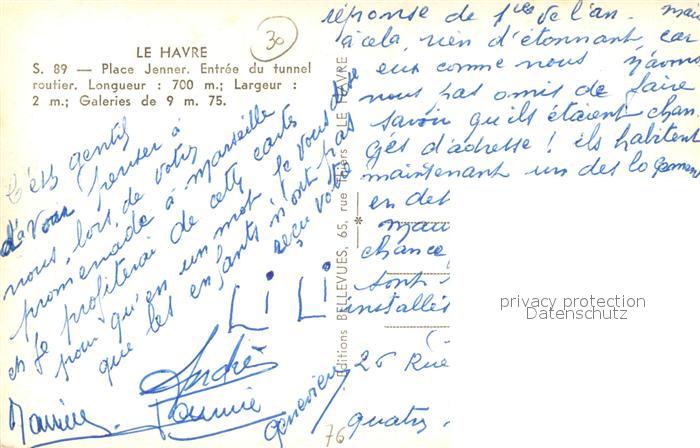 LE HAVRE
30
S. 89 — Place Jenner. Entrée du tunnel
routier. Longueur : 700 m.; Largeur :
2 m.; Galeries de 9 m. 75.
C'est gentil
d'avoir penser à
nous, lors de votre
promenade à marseille
et je profiterai de cette carte
pour qu'en un mot je vous dise
que les enfants n'ont pas
reçu votre
réponse de 1er de l'an. mais
à cela, rien d'étonnant, car
eux comme nous n'avons
nous pas omis de faire
savoir qu'ils étaient chan
gés d'adresse ! ils habitent
maintenant un des logements
en det
mau
chance
sont
installés
26 Rue
quatre
LiLi
André
Geneviève
Editions BELLEVUES, 65, rue Thiers - LE HAVRE
76
privacy protection
Datenschutz